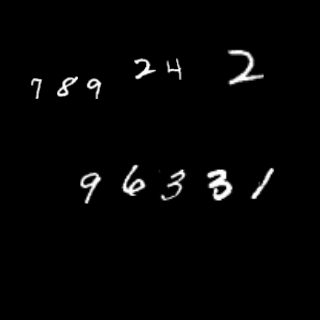 789 24 2
96331